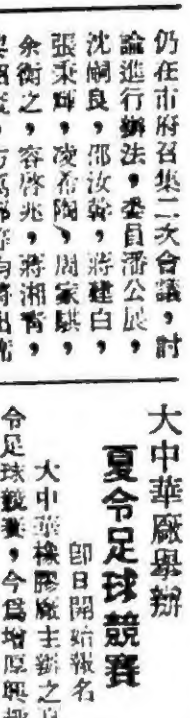 仍在市府召集二次會議，討
論進行辦法，委員潘公展，
沈嗣良，邵汝幹，蔣建白，
張秉輝，凌希陶，周家騏，
余衡之，容啓兆，蔣湘青，
大中華廠舉辦
夏令足球競賽
卽日開始報名
大中華橡膠廠主辦之夏
令足球競賽，今爲增厚興趣